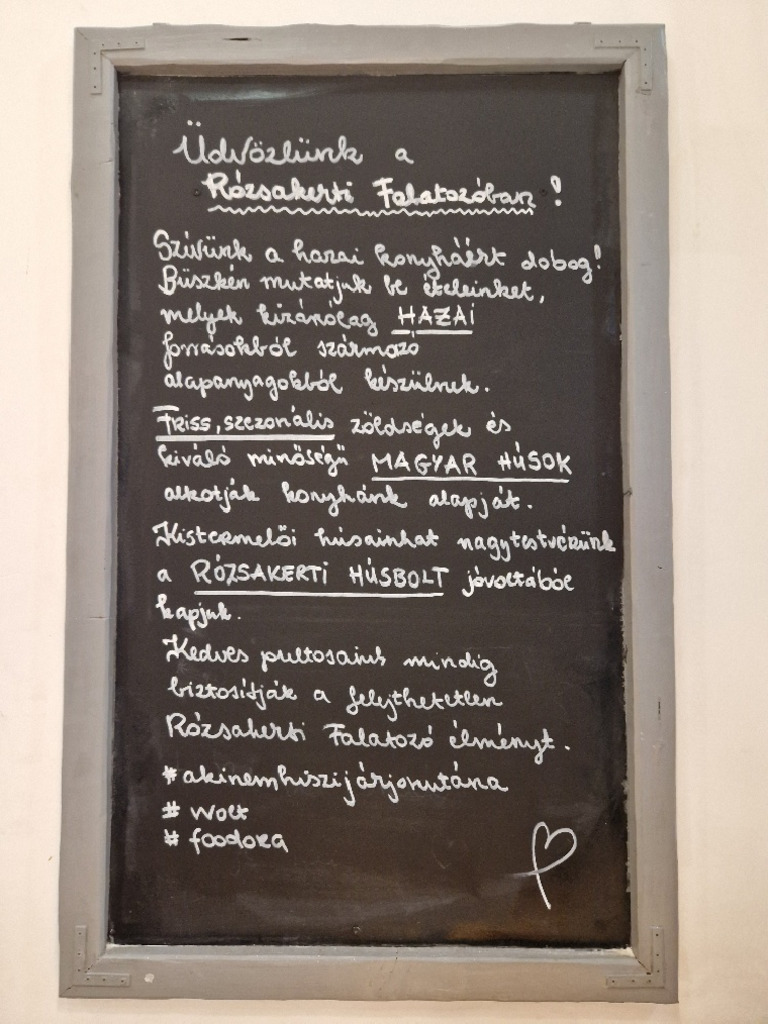 Üdvözlünk a
Rózsakerti Falatozóban!
Szívünk a hazai konyháért dobog!
Büszkén mutatjuk be ételeinket,
melyek kizárólag HAZAI
forrásokból származó
alapanyagokból készülnek.
Friss, szezonális zöldségek és
kiváló minőségű MAGYAR HÚSOK
alkotják konyhánk alapját.
Kistermelői húsainkat nagytestvérünk
a RÓZSAKERTI HÚSBOLT jóvoltából
kapjuk.
Kedves pultosaink mindig
biztosítják a felejthetetlen
Rózsakerti Falatozó élményt.
#akinemhiszijárjonutána
# wolt
# foodora